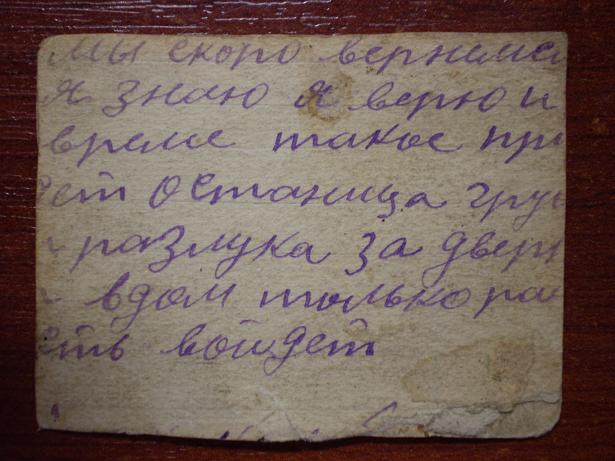 мы скоро вернемся
я знаю я верю и
време такое при
дет останица грус
разлука за двер
вдом только рад
есть войдет